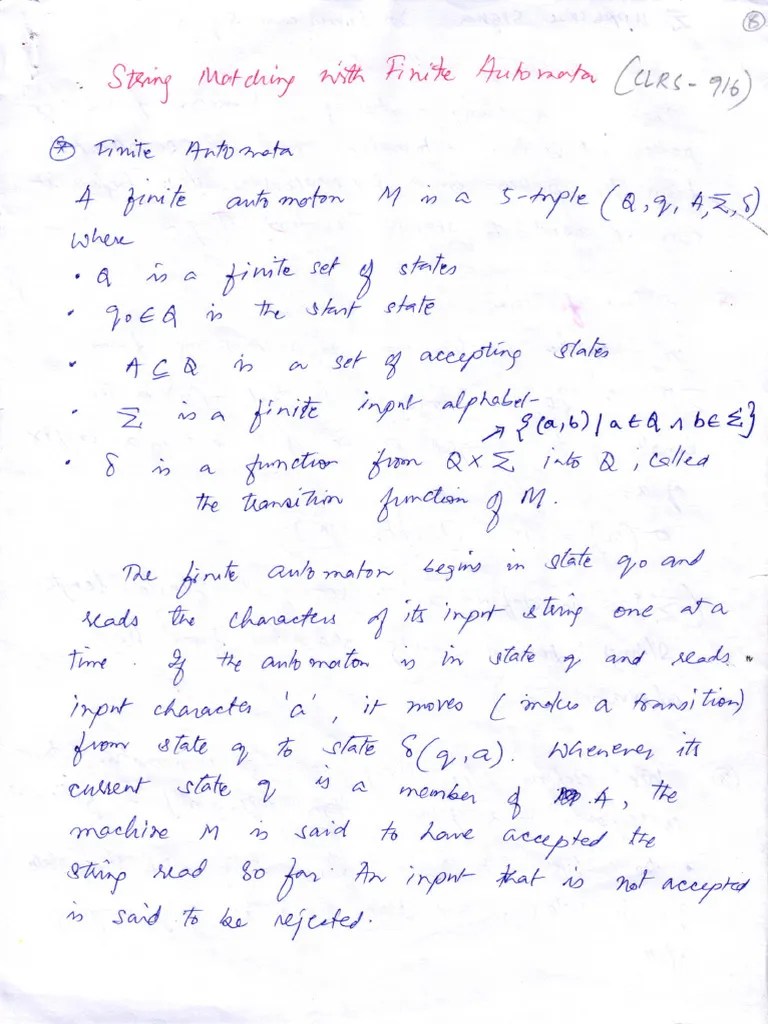 8
String Matching with Finite Automata (CLRS - 916)
* Finite Automata
A finite automaton M is a 5-tuple (Q, q, A, Σ, δ)
where
• Q is a finite set of states
• q0 ∈ Q is the start state
• A ⊆ Q is a set of accepting states
• Σ is a finite input alphabet
↗ {(a,b) | a ∈ Q ∧ b ∈ Σ}
• δ is a function from Q × Σ into Q, called
the transition function of M.
The finite automaton begins in state q0 and
reads the characters of its input string one at a
time. If the automaton is in state q and reads
input character 'a', it moves (makes a transition)
from state q to state δ(q, a). Whenever its
current state q is a member of A, the
machine M is said to have accepted the
string read so far. An input that is not accepted
is said to be rejected.